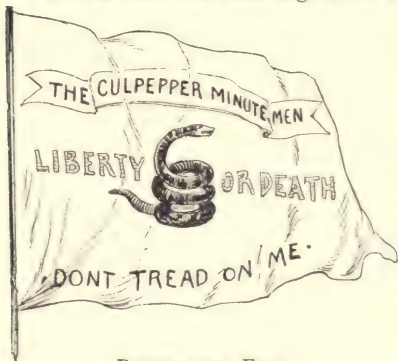 THE CULPEPPER MINUTE MEN
LIBERTY OR DEATH
·DONT TREAD ON ME·